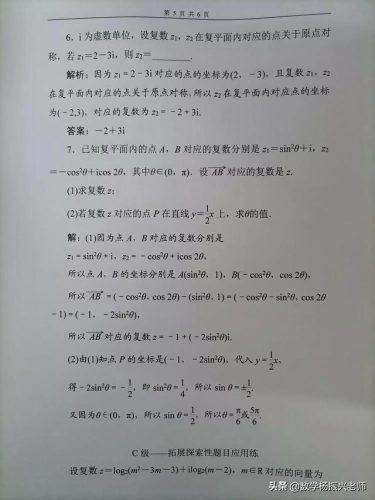 第 5 页 共 6 页
6. i 为虚数单位，设复数 z₁, z₂ 在复平面内对应的点关于原点对
称，若 z₁=2－3i，则 z₂=________.
解析：因为 z₁=2－3i 对应的点的坐标为(2，－3)，且复数 z₁，z₂
在复平面内对应的点关于原点对称，所以 z₂ 在复平面内对应点的坐标
为(－2,3)，对应的复数为 z₂=－2+3i.
答案：－2+3i
7．已知复平面内的点 A，B 对应的复数分别是 z₁=sin²θ+i，z₂
=－cos²θ+icos 2θ，其中θ∈(0, π). 设 AB 对应的复数是 z.
(1)求复数 z;
(2)若复数 z 对应的点 P 在直线 y=1/2x 上，求θ的值.
解：(1)因为点 A，B 对应的复数分别是
z₁=sin²θ+i，z₂=－cos²θ+icos 2θ,
所以点 A，B 的坐标分别是 A(sin²θ，1)，B(－cos²θ，cos 2θ),
所以 AB=(－cos²θ, cos 2θ)－(sin²θ, 1)=(－cos²θ－sin²θ, cos 2θ
－1)=(－1，－2sin²θ),
所以 AB 对应的复数 z=－1+(－2sin²θ)i.
(2)由(1)知点 P 的坐标是(－1，－2sin²θ)，代入 y=1/2x,
得－2sin²θ=－1/2，即 sin²θ=1/4，所以 sin θ=±1/2.
又因为θ∈(0, π)，所以 sin θ=1/2，所以θ=π/6或5π/6.
C 级——拓展探索性题目应用练
设复数 z=log₂(m²－3m－3)+ilog₂(m－2)，m∈R 对应的向量为
头条 @数学杨振兴老师